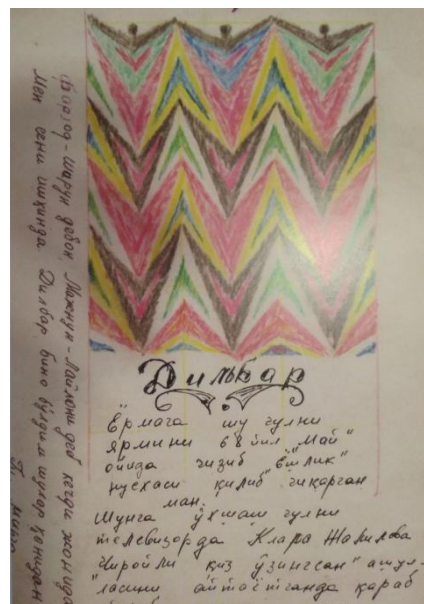 Дильбар
"Ёрмага шу гулни
ярмини 68 йил "Май"
ойида чизиб "ёшлик"
нусхаси қилиб чиқарган
ман.
Шунга ўхшаш гулни
телевизорда Клара Жалилова
"Чиройли қиз ўзингсан" ашул-
ласини айтаётганда қараб
Фарҳод-Ширин дебон Мажнун-Лайлони деб кечди жонидан
Мен сени ишқингда Дилбар бино бўлдим шулар қонидан